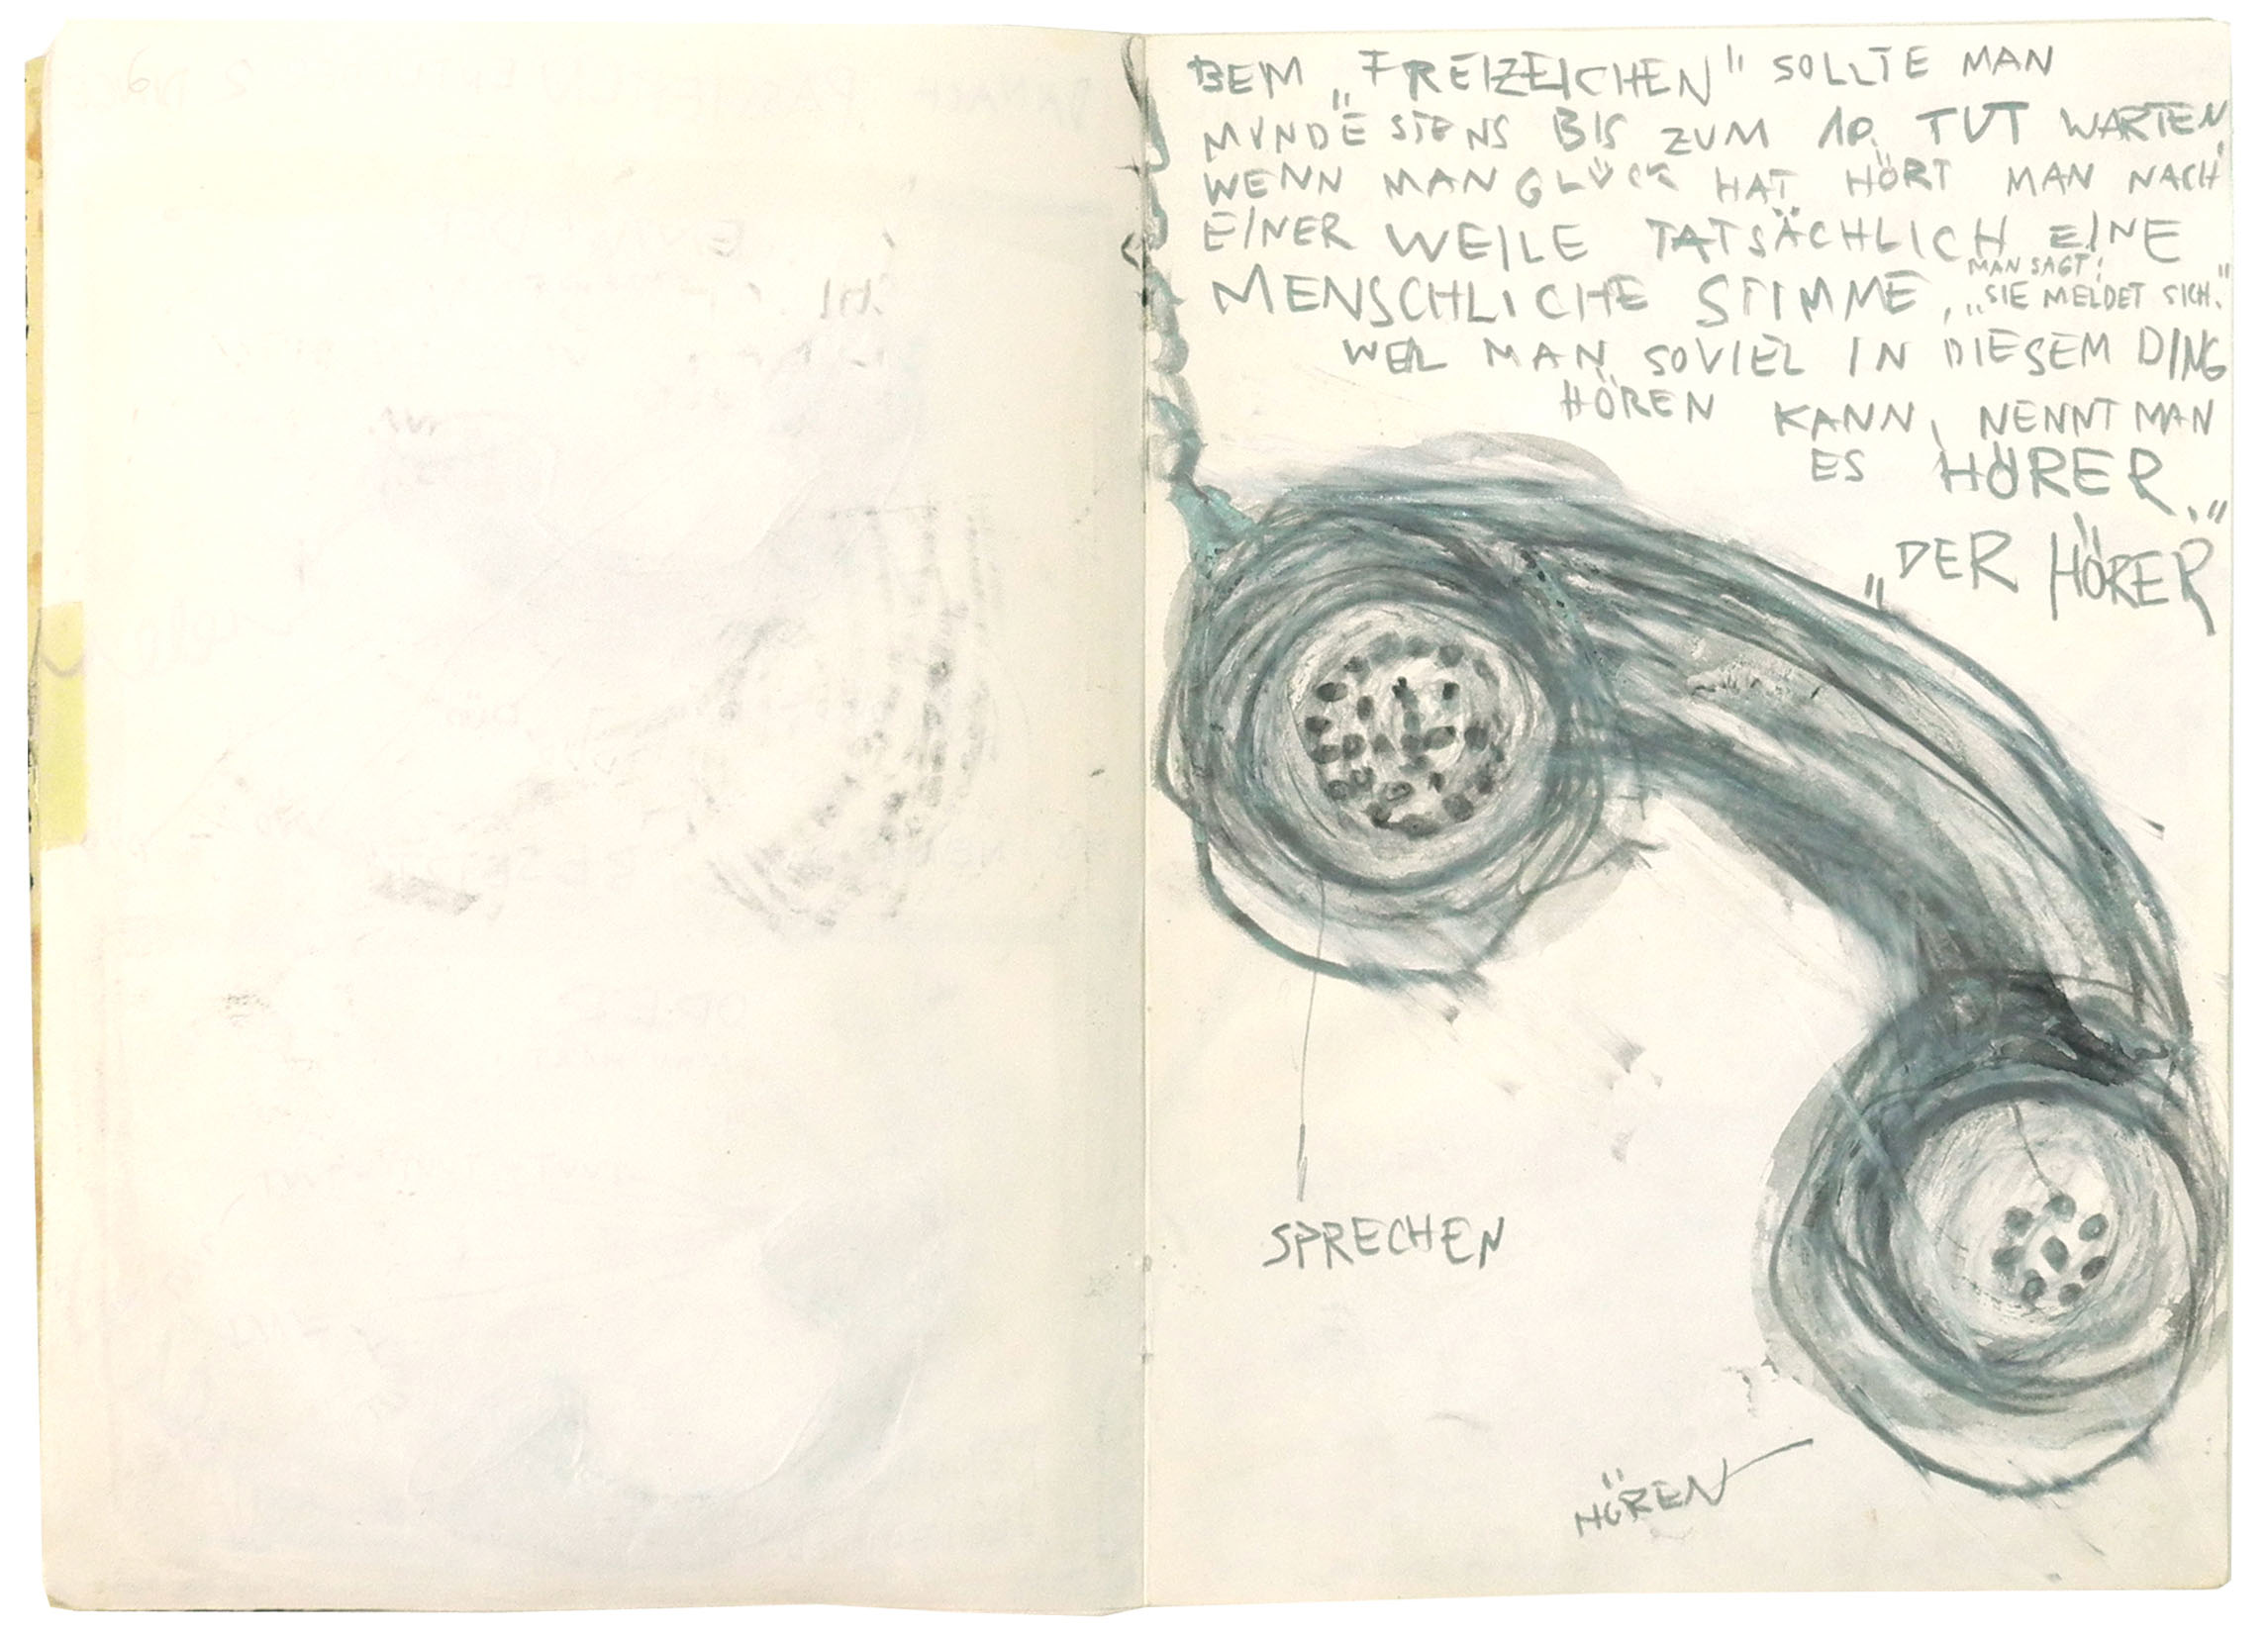 BEIM „FREIZEICHEN" SOLLTE MAN
MINDESTENS BIS ZUM 10. TUT WARTEN,
WENN MAN GLÜCK HAT HÖRT MAN NACH
EINER WEILE TATSÄCHLICH EINE
MENSCHLICHE STIMME,
MAN SAGT:
„SIE MELDET SICH."
WEIL MAN SOVIEL IN DIESEM DING
HÖREN KANN, NENNT MAN
ES HÖRER.
„DER HÖRER"
SPRECHEN
HÖREN